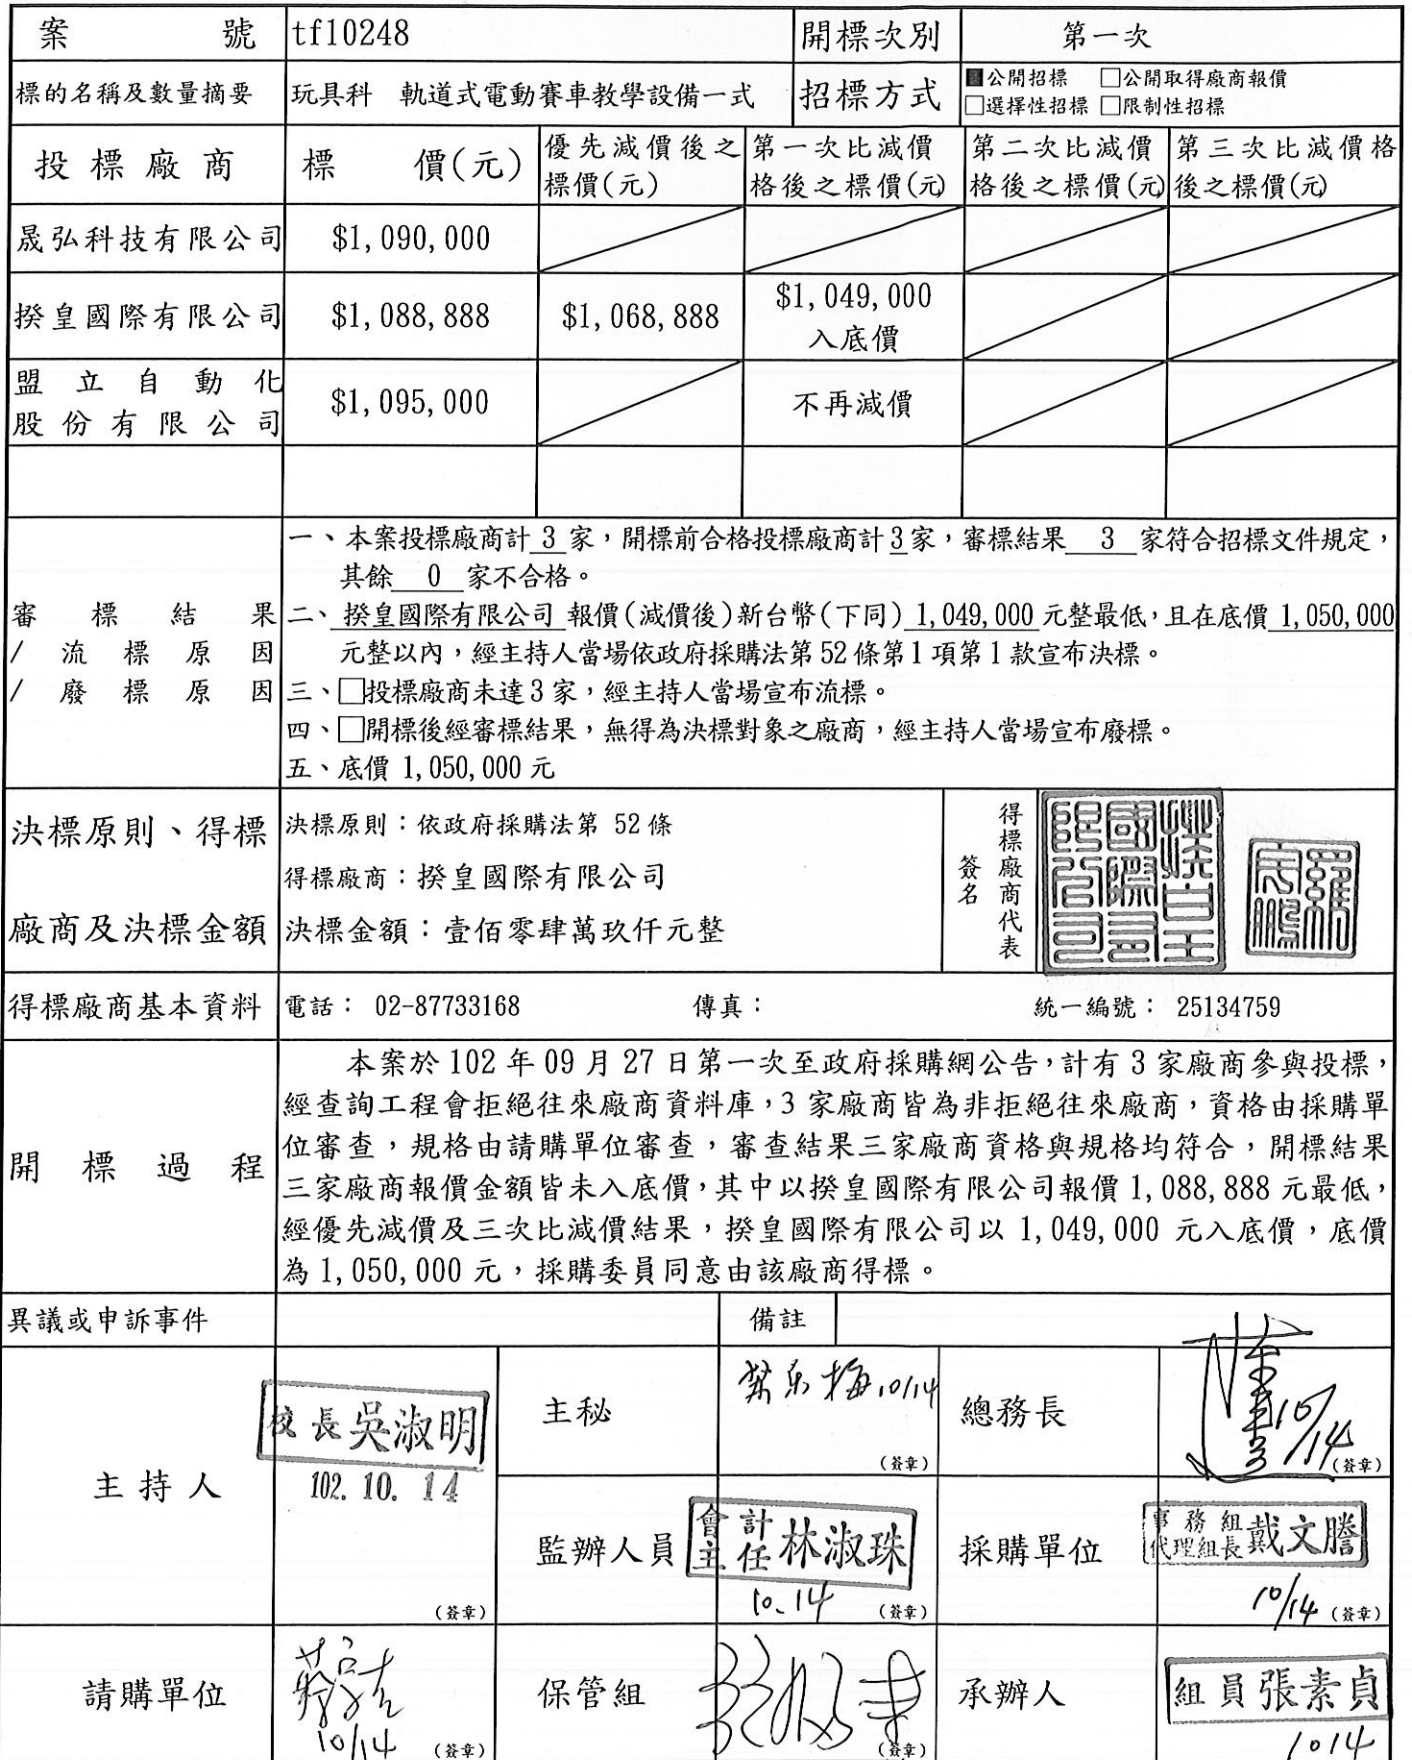 案 號 tf10248 開標次別 第一次
標的名稱及數量摘要 玩具科 軌道式電動賽車教學設備一式 招標方式 ■公開招標 □公開取得廠商報價
□選擇性招標 □限制性招標
投標廠商 標 價(元) 優先減價後之標價(元) 第一次比減價格後之標價(元) 第二次比減價格後之標價(元) 第三次比減價格後之標價(元)
晟弘科技有限公司 $1,090,000
揆皇國際有限公司 $1,088,888 $1,068,888 $1,049,000
入底價
盟立自動化股份有限公司 $1,095,000 不再減價
審標結果
/流標原因
/廢標原因
一、本案投標廠商計 3 家，開標前合格投標廠商計 3 家，審標結果 3 家符合招標文件規定，
其餘 0 家不合格。
二、揆皇國際有限公司 報價(減價後)新台幣(下同) 1,049,000 元整最低，且在底價 1,050,000
元整以內，經主持人當場依政府採購法第 52 條第 1 項第 1 款宣布決標。
三、□投標廠商未達 3 家，經主持人當場宣布流標。
四、□開標後經審標結果，無得為決標對象之廠商，經主持人當場宣布廢標。
五、底價 1,050,000 元
決標原則、得標
廠商及決標金額
決標原則：依政府採購法第 52 條
得標廠商：揆皇國際有限公司
決標金額：壹佰零肆萬玖仟元整
得標廠商代表
簽名
得標廠商基本資料 電話： 02-87733168 傳真： 統一編號： 25134759
開標過程
本案於 102 年 09 月 27 日第一次至政府採購網公告，計有 3 家廠商參與投標，
經查詢工程會拒絕往來廠商資料庫，3 家廠商皆為非拒絕往來廠商，資格由採購單
位審查，規格由請購單位審查，審查結果三家廠商資格與規格均符合，開標結果
三家廠商報價金額皆未入底價，其中以揆皇國際有限公司報價 1,088,888 元最低，
經優先減價及三次比減價結果，揆皇國際有限公司以 1,049,000 元入底價，底價
為 1,050,000 元，採購委員同意由該廠商得標。
異議或申訴事件 備註
主持人 校長吳淑明
102. 10. 14
(簽章)
主秘 10/14
(簽章)
總務長 10/14
(簽章)
監辦人員 會計主任林淑珠
10.14 (簽章)
採購單位 事務組代理組長戴文謄
10/14 (簽章)
請購單位 10/14 (簽章)
保管組 (簽章)
承辦人 組員張素貞
1014